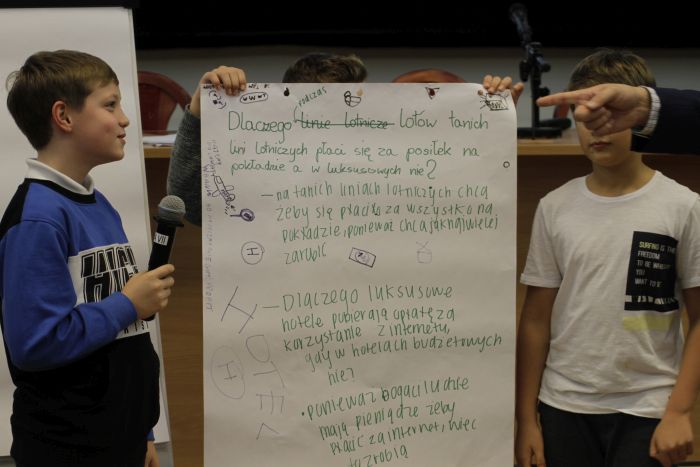 podczas
Dlaczego linie lotnicze lotów tanich
lini lotniczych płaci się za posiłek na
pokładzie a w luksusowych nie?
— na tanich liniach lotniczych chcą
żeby się płaciło za wszystko na
pokładzie, ponieważ chcą jak najwięcej
zarobić
— Dlaczego luksusowe
hotele pobierają opłatę za
korzystanie z internetu,
gdy w hotelach budżetowych
nie?
• ponieważ bogaci ludzie
mają pieniądze żeby
płacić za internet, więc
to zrobią
H
H
HOTEL
VII
SURFING IS THE
FREEDOM
TO BE WHAT
YOU
WANT TO BE